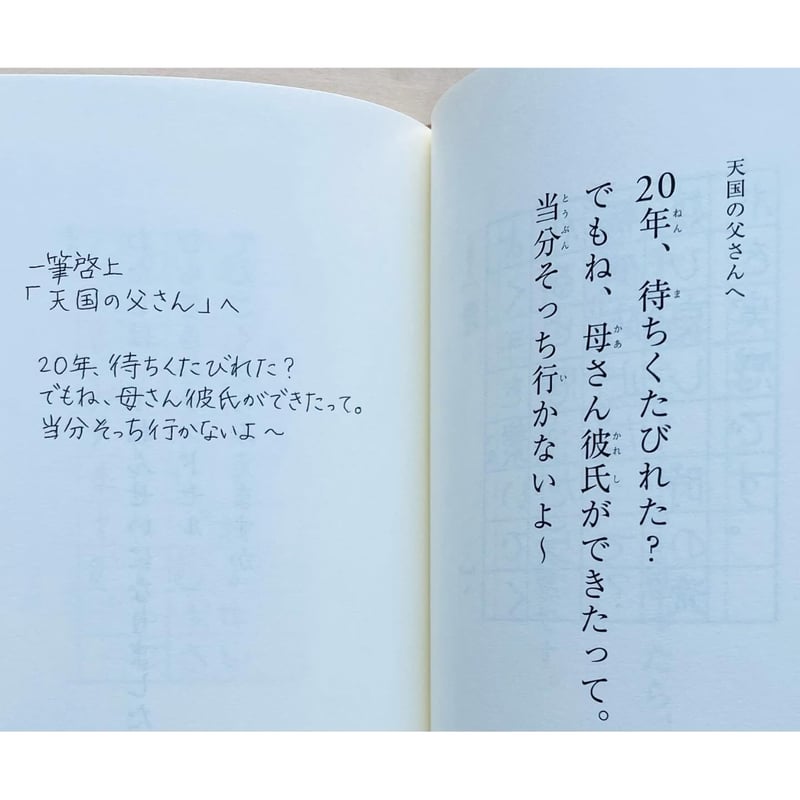 一筆啓上
「天国の父さん」へ
20年、待ちくたびれた?
でもね、母さん彼氏ができたって。
当分そっち行かないよ～
天国の父さんへ
20年、待ちくたびれた?
でもね、母さん彼氏ができたって。
当分そっち行かないよ～